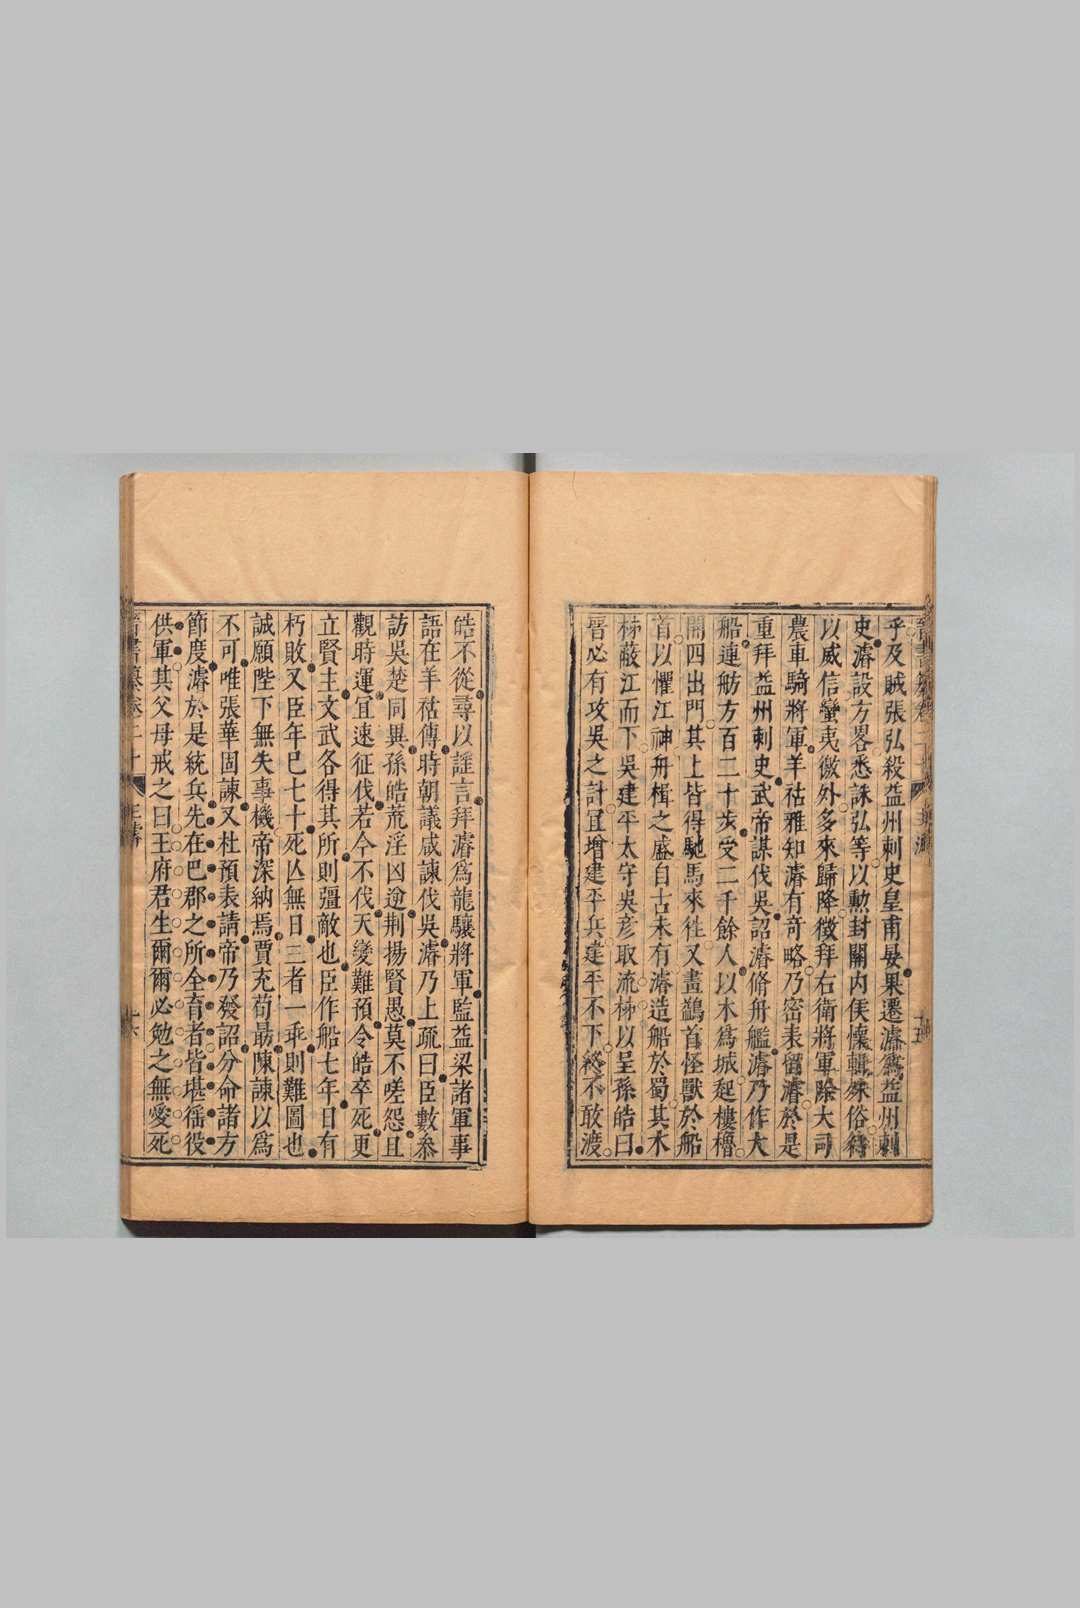 乎及賊張弘殺益州刺史皇甫晏果遷濬爲益州刺
史濬設方畧悉誅弘等以勲封關内侯懷輯殊俗待
以威信蠻夷徼外多來歸降徴拜右衛將軍除大司
農車騎將軍羊祜雅知濬有奇略乃密表留濬於是
重拜益州刺史武帝謀伐吳詔濬脩舟艦濬乃作大
船連舫方百二十步受二千餘人以木爲城起樓櫓
開四出門其上皆得馳馬來徃又畫鷁首怪獸於船
首以懼江神舟楫之盛自古未有濬造船於蜀其木
柹蔽江而下吳建平太守吳彦取流柹以呈孫皓曰
晉必有攻吳之計宜增建平兵建平不下終不敢渡
皓不從尋以謡言拜濬爲龍驤將軍監益梁諸軍事
語在羊祜傳時朝議咸諫伐吳濬乃上疏曰臣數叅
訪吳楚同異孫皓荒淫凶逆荆揚賢愚莫不嗟怨且
觀時運宜速征伐若今不伐天變難預令皓卒死更
立賢主文武各得其所則彊敵也臣作船七年日有
朽敗又臣年已七十死亾無日三者一乖則難圖也
誠願陛下無失事機帝深納焉賈充荀勗陳諫以爲
不可唯張華固諫又杜預表請帝乃發詔分命諸方
節度濬於是統兵先在巴郡之所全育者皆堪徭役
供軍其父母戒之曰王府君生爾爾必勉之無愛死
晉書纂卷二十
王濬
十六